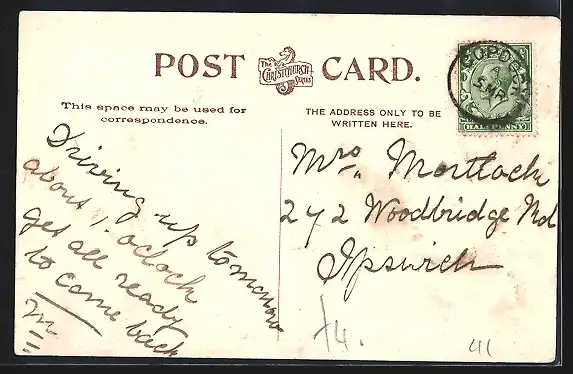 POST CARD.
The
CHRISTCHURCH
SERIES
This space may be used for
correspondence.
THE ADDRESS ONLY TO BE
WRITTEN HERE.
HALFPENNY
Driving up tomorrow
about 1. oclock
get all ready
to come back
M
Mrs Mortlock
242 Woodbridge Rd
Ipswich
41